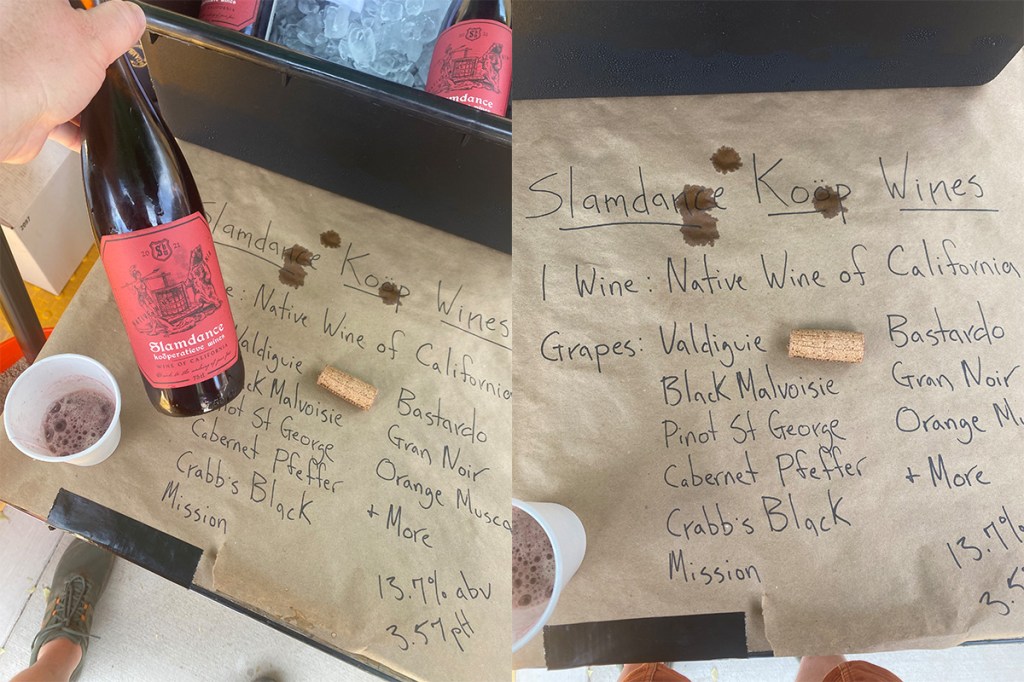 2021
Slamdance
koöperatieve wines
WINE OF CALIFORNIA
Slamdance Koöp Wines
: Native Wine of California
Valdiguie
Black Malvoisie
Pinot St George
Cabernet Pfeffer
Crabb's Black
Mission
Bastardo
Gran Noir
Orange Musca
+ More
13.7% abv
3.57 pH
Slamdance Koöp Wines
1 Wine: Native Wine of California
Grapes: Valdiguie
Black Malvoisie
Pinot St George
Cabernet Pfeffer
Crabb's Black
Mission
Bastardo
Gran Noir
Orange Mu
+ More
13.7%
3.5